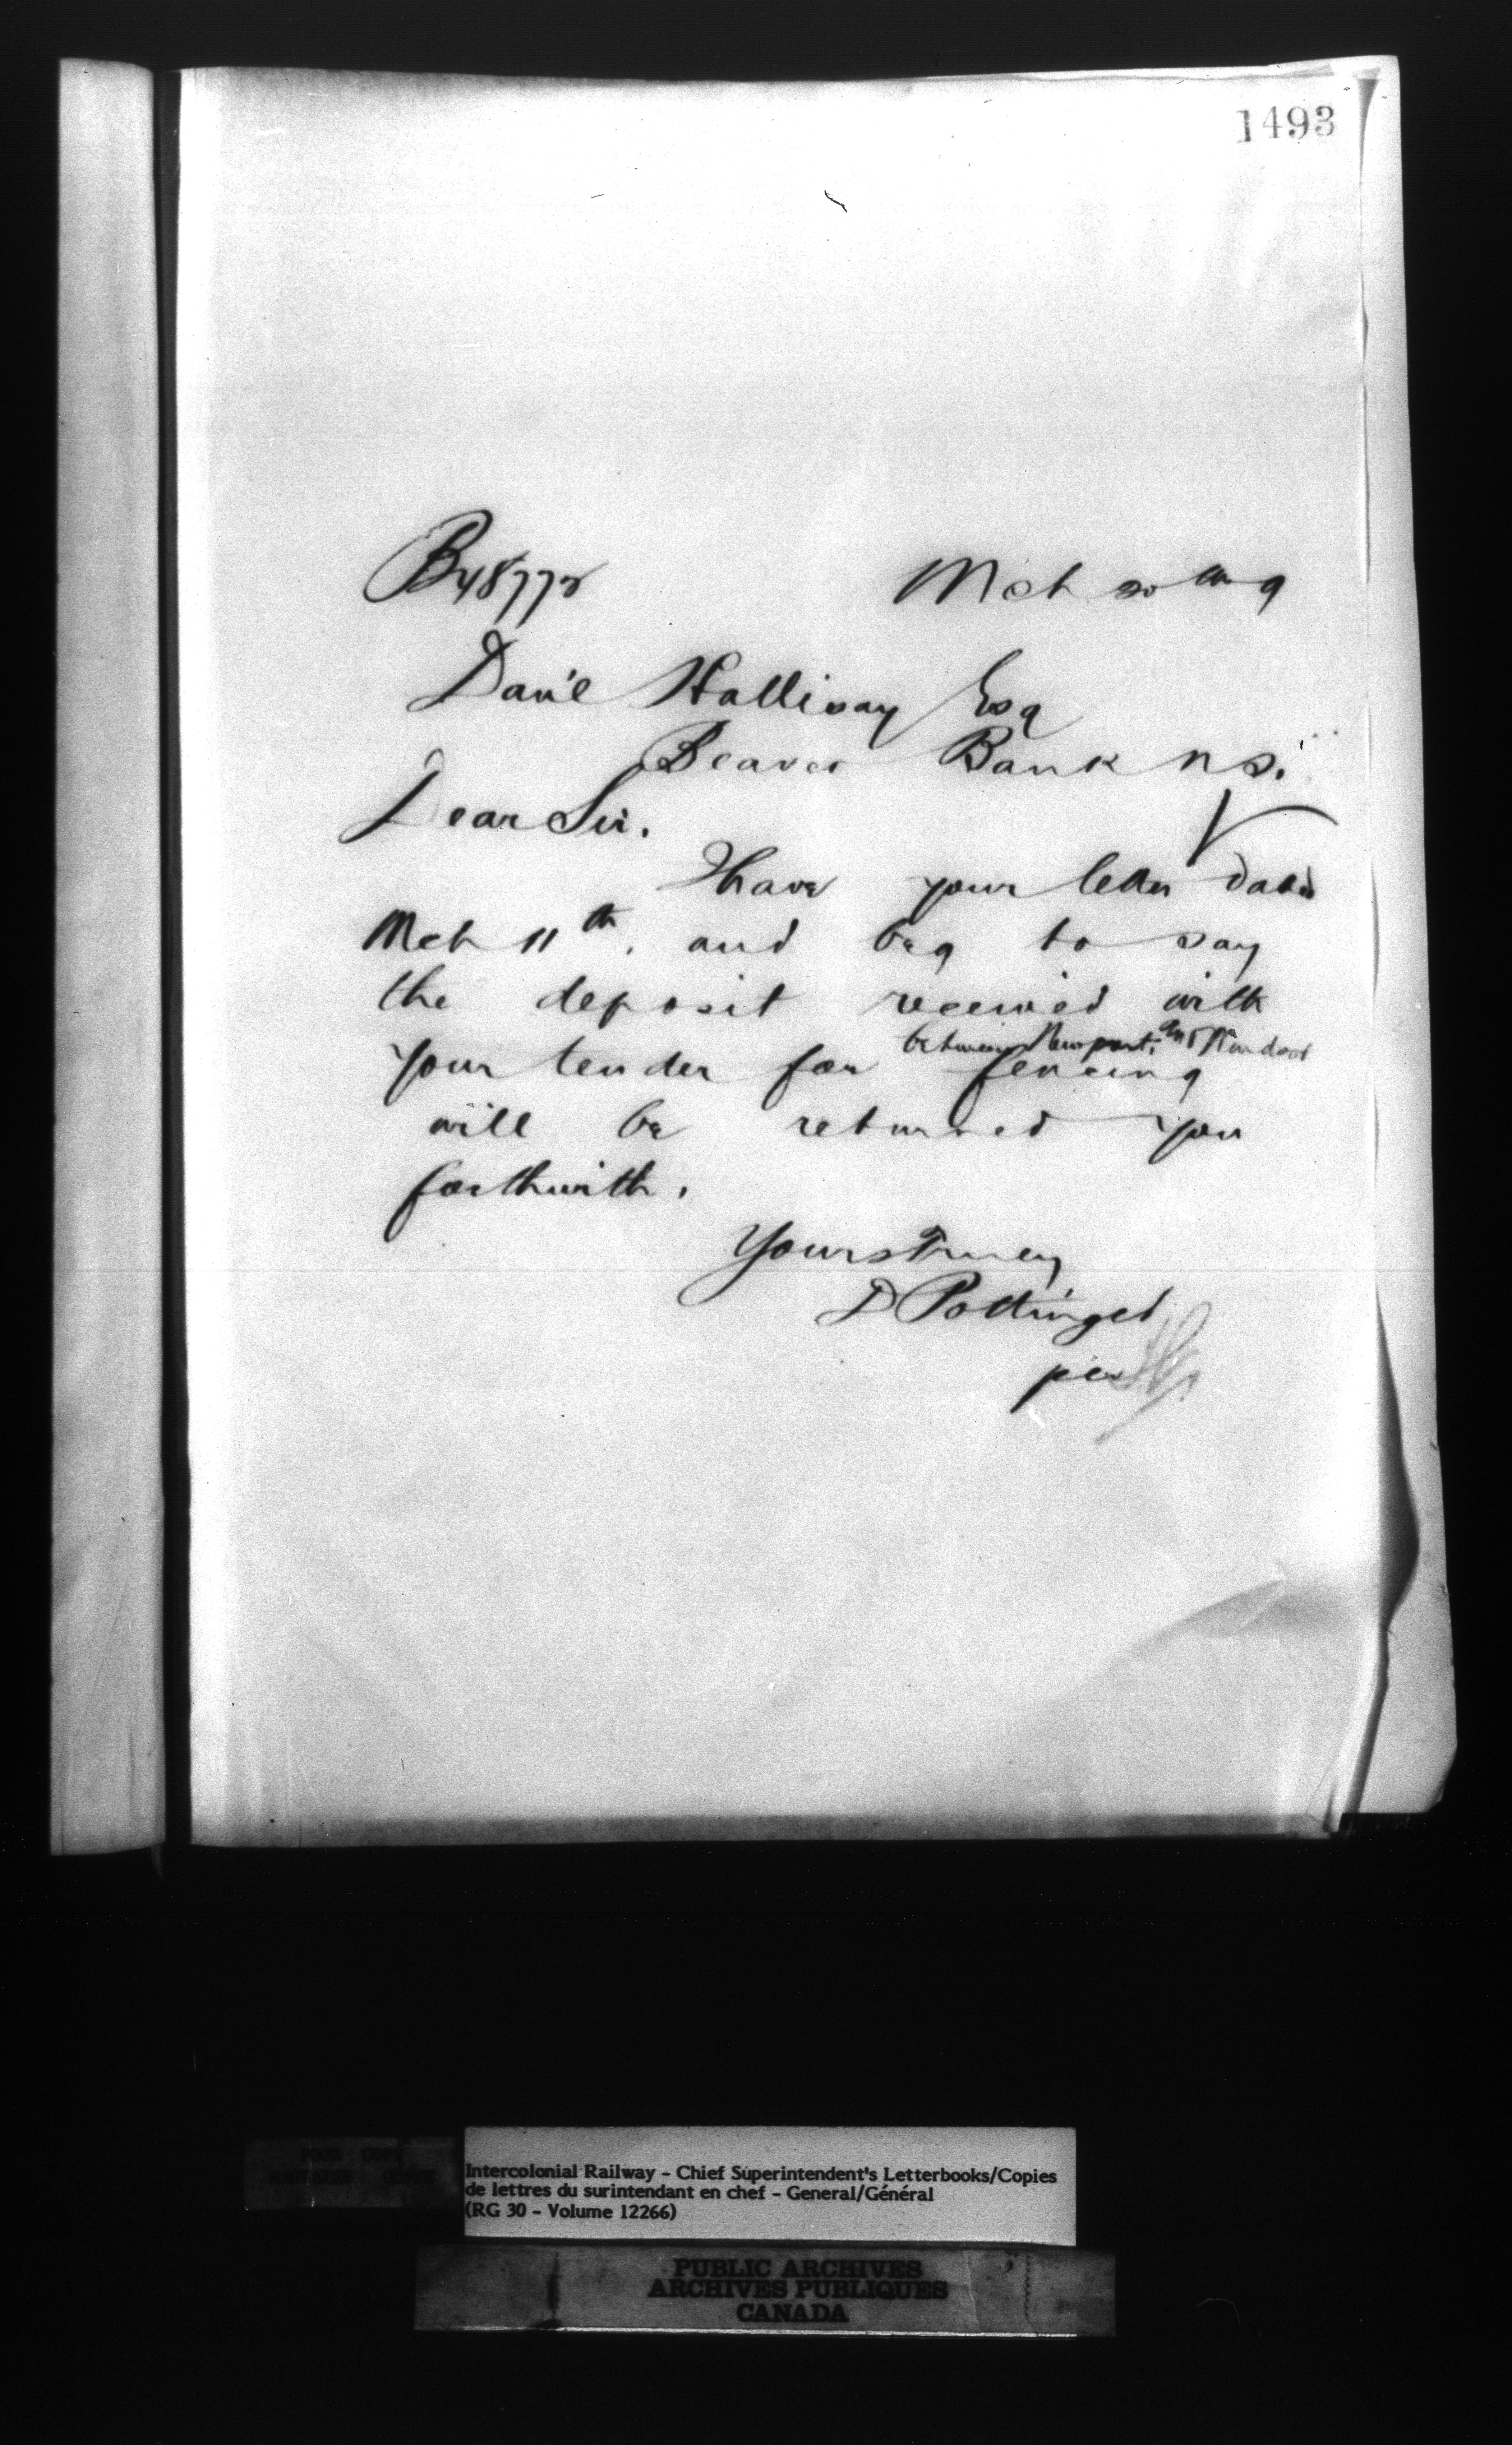 1493
B48772 Mch 20th 9
Dan'l Halliday Esq
Beaver Bank N.S.
Dear Sir.
Have your letter dated
Mch 11th, and beg to say
the deposit received with
between Newport and Windsor
your tender for fencing
will be returned you
forthwith.
Yours Truly
D Pottinger
per
POOR COPY
MAUVAISE COPIE
Intercolonial Railway - Chief Superintendent's Letterbooks/Copies
de lettres du surintendant en chef - General/Général
(RG 30 - Volume 12266)
PUBLIC ARCHIVES
ARCHIVES PUBLIQUES
CANADA